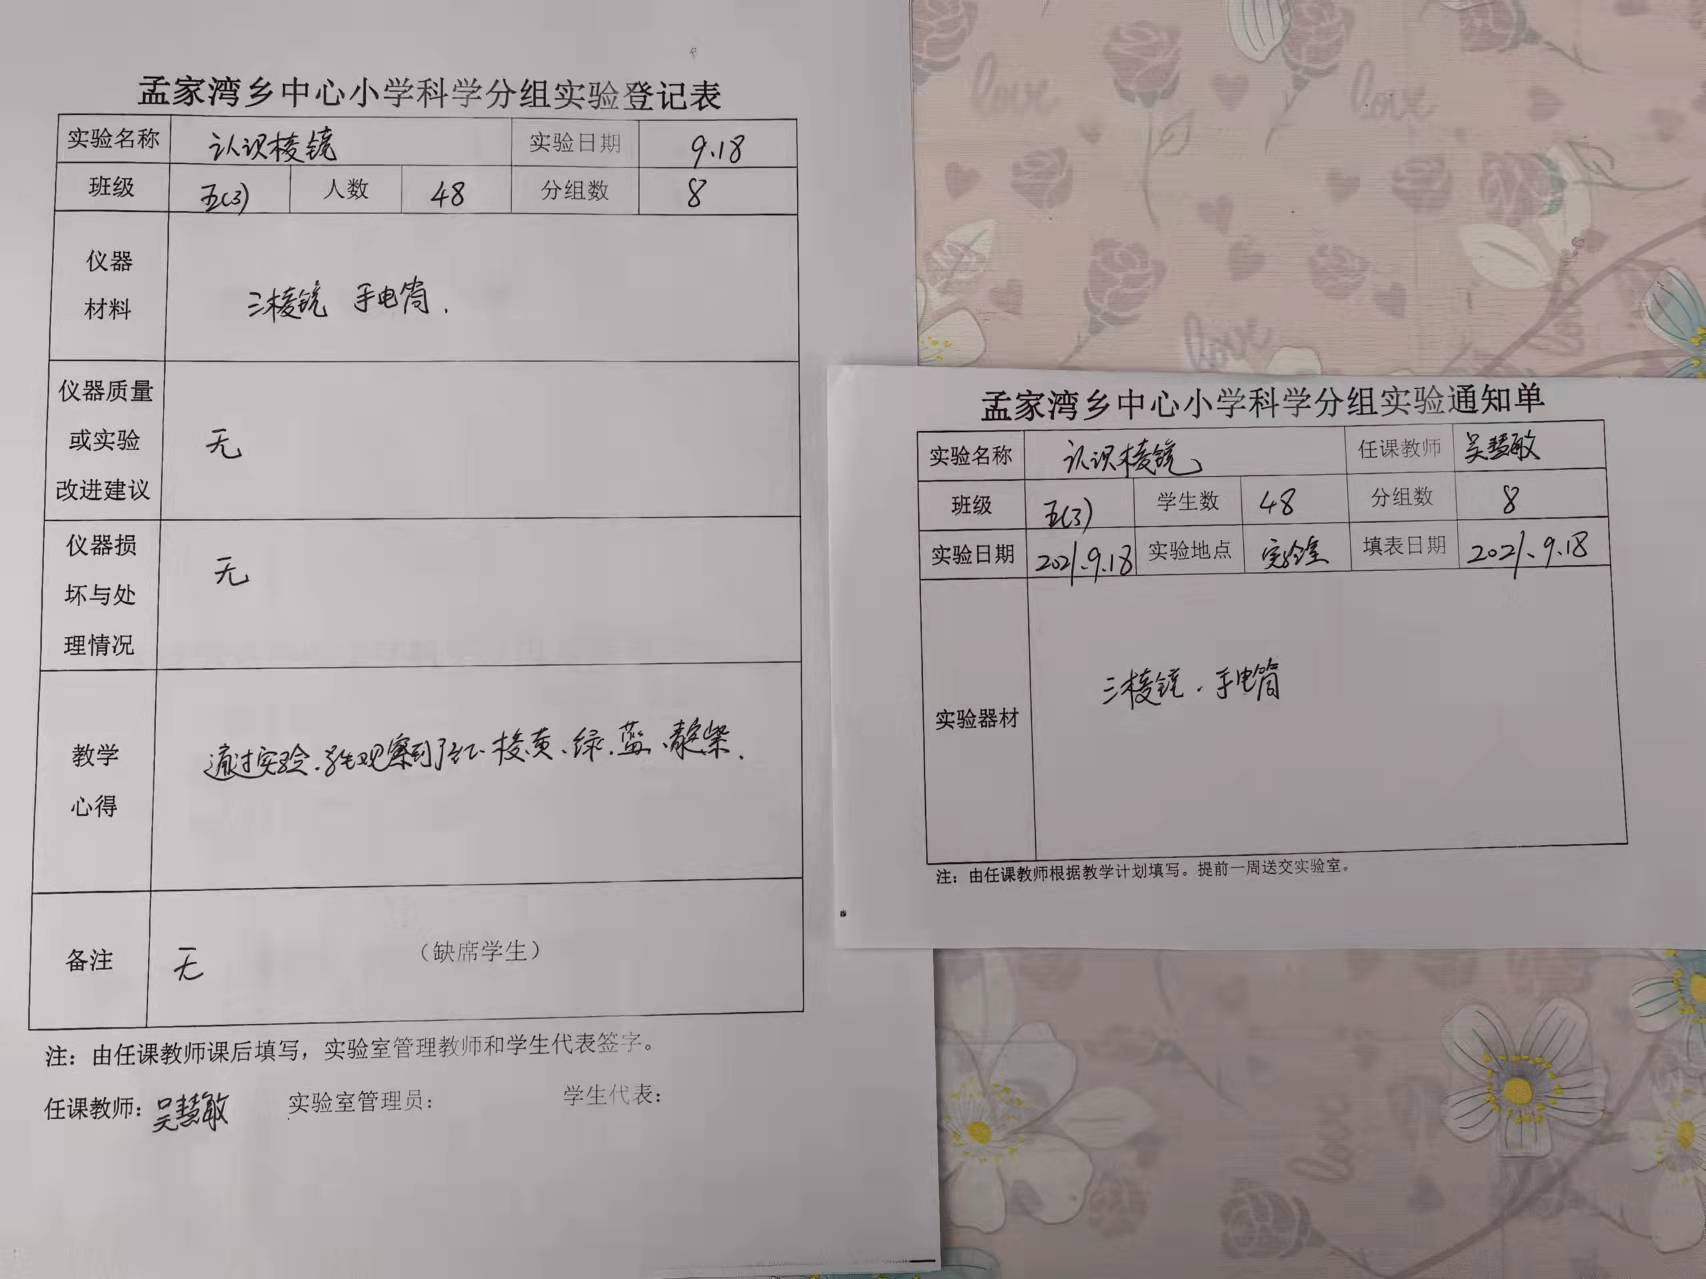 孟家湾乡中心小学科学分组实验登记表
实验名称 认识棱镜 实验日期 9.18
班级 五(3) 人数 48 分组数 8
仪器
材料
三棱镜 手电筒.
仪器质量
或实验
改进建议
无
仪器损
坏与处
理情况
无
教学
心得
通过实验.学生观察到了红、橙、黄、绿、蓝、靛紫.
备注 无 （缺席学生）
注：由任课教师课后填写，实验室管理教师和学生代表签字。
任课教师：吴慧敏 实验室管理员： 学生代表：
孟家湾乡中心小学科学分组实验通知单
实验名称 认识棱镜 任课教师 吴慧敏
班级 五(3) 学生数 48 分组数 8
实验日期 2021.9.18 实验地点 实验室 填表日期 2021.9.18
实验器材 三棱镜.手电筒
注：由任课教师根据教学计划填写。提前一周送交实验室。
love
love
love
love